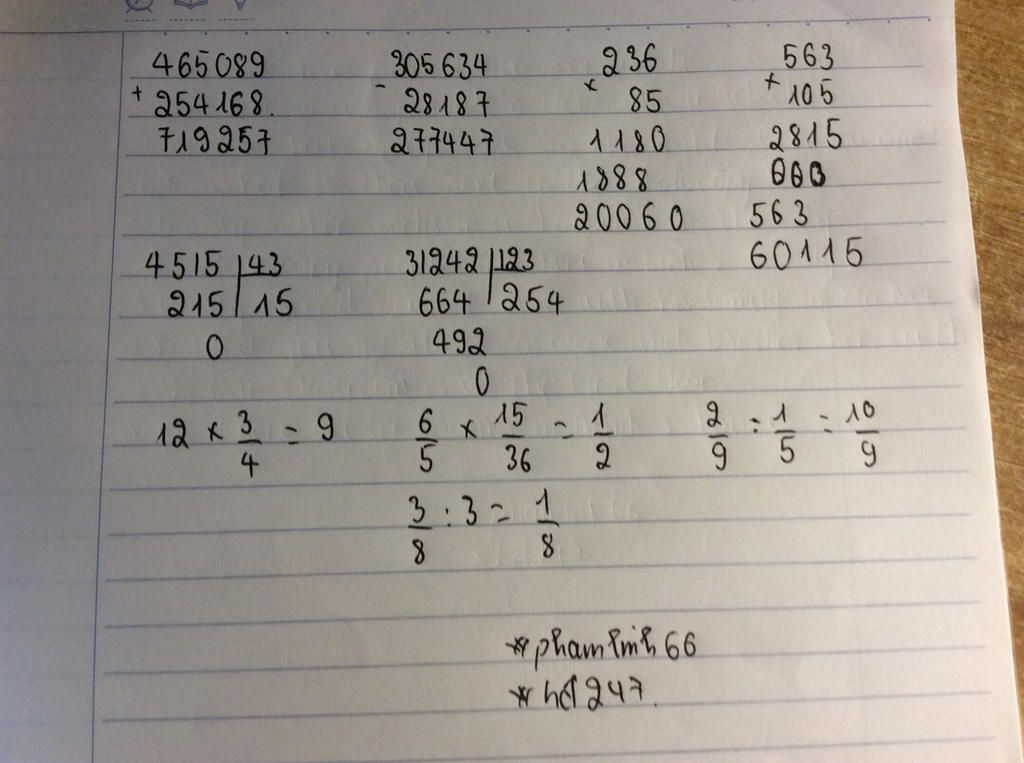 465089 305634 236 563
+ 254168. - 28187 × 85 × 105
719257 277447 1180 2815
1888 000
20060 563
4515 | 43 31242 | 123 60115
215 | 15 664 | 254
0 492
0
12 × 3/4 = 9 6/5 × 15/36 = 1/2 2/9 : 1/5 = 10/9
3/8 : 3 = 1/8
*phamlinh66
*hd247.